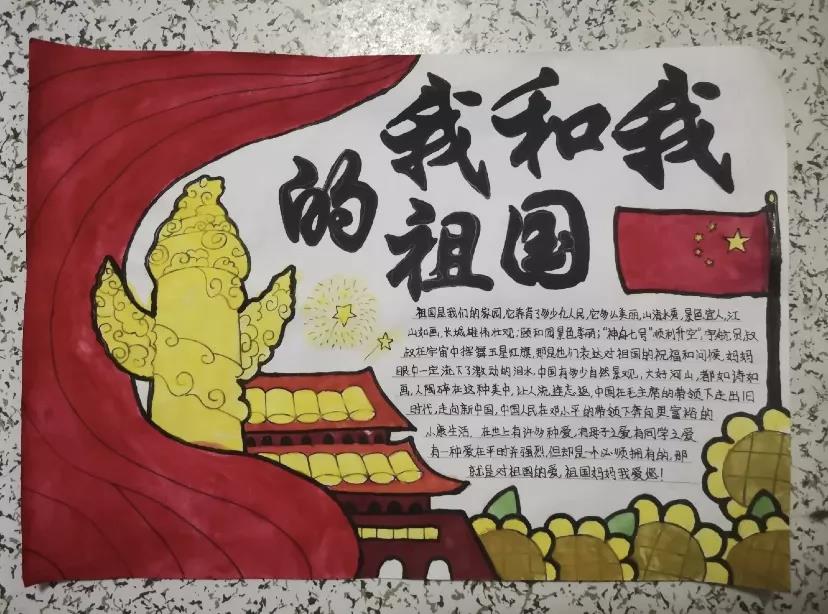 我和我
的
祖国
祖国是我们的家园,它养育了多少九人民,它多么美丽,山清水秀,景色宜人,江
山如画,长城雄伟壮观;颐和园景色秀丽;"神舟七号"顺利升空",宇航员叔
叔在宇宙中挥舞五星红旗,那是他们表达对祖国的祝福和问候,妈妈
眼中一定流下了激动的泪水,中国有多少自然景观,大好河山,都如诗如
画,人陶碎在这种美中,让人流连忘返,中国在毛主席的带领下走出旧
时代,走向新中国,中国人民在邓小平的带领下奔向更富裕的
小康生活.在世上有许多种爱,有母子之爱有同学之爱
有一种爱在平时并强烈,但却是一个必须拥有的,那
就是对祖国的爱,祖国妈妈我爱您!